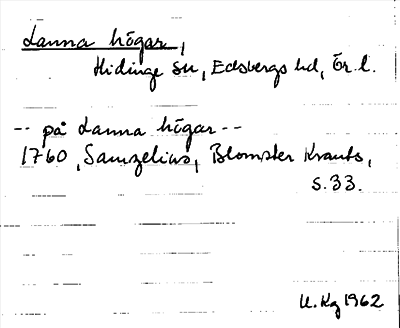 Lanna högar,
Hidinge sn, Edsbergs hd, Ör. l.
-- på Lanna högar --
1760, Samzelius, Blomster Krants,
s. 33.
U. Kg 1962